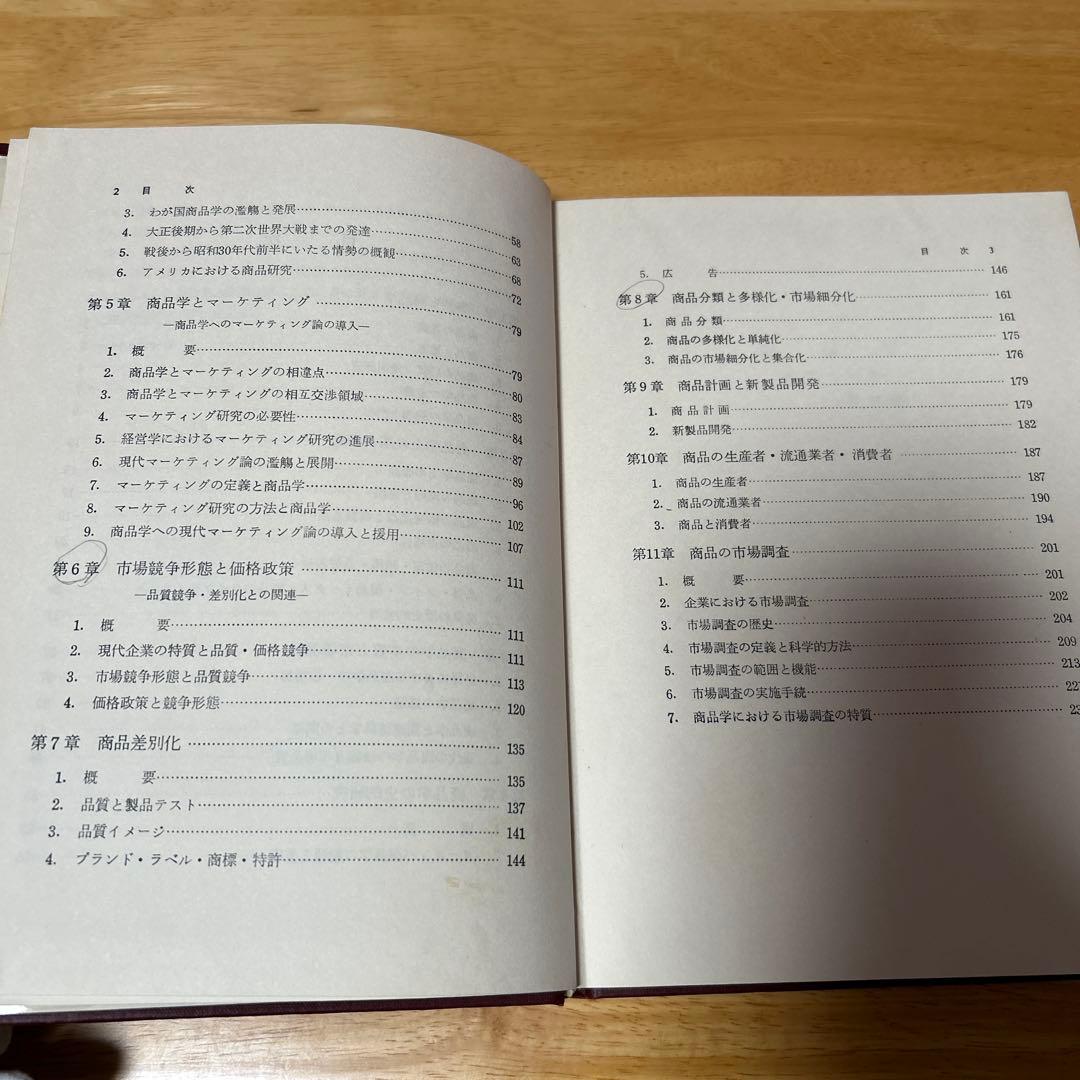 2 目 次
3. わが国商品学の濫觴と発展……58
4. 大正後期から第二次世界大戦までの発達……63
5. 戦後から昭和30年代前半にいたる情勢の概観……68
6. アメリカにおける商品研究……72
第5章 商品学とマーケティング……79
―商品学へのマーケティング論の導入―
1. 概 要……79
2. 商品学とマーケティングの相違点……80
3. 商品学とマーケティングの相互交渉領域……83
4. マーケティング研究の必要性……84
5. 経営学におけるマーケティング研究の進展……87
6. 現代マーケティング論の濫觴と展開……89
7. マーケティングの定義と商品学……96
8. マーケティング研究の方法と商品学……102
9. 商品学への現代マーケティング論の導入と援用……107
第6章 市場競争形態と価格政策……111
―品質競争・差別化との関連―
1. 概 要……111
2. 現代企業の特質と品質・価格競争……111
3. 市場競争形態と品質競争……113
4. 価格政策と競争形態……120
第7章 商品差別化……135
1. 概 要……135
2. 品質と製品テスト……137
3. 品質イメージ……141
4. ブランド・ラベル・商標・特許……144
目 次 3
5. 広 告……146
第8章 商品分類と多様化・市場細分化……161
1. 商品分類……161
2. 商品の多様化と単純化……175
3. 商品の市場細分化と集合化……176
第9章 商品計画と新製品開発……179
1. 商品計画……179
2. 新製品開発……182
第10章 商品の生産者・流通業者・消費者……187
1. 商品の生産者……187
2. 商品の流通業者……190
3. 商品と消費者……194
第11章 商品の市場調査……201
1. 概 要……201
2. 企業における市場調査……202
3. 市場調査の歴史……204
4. 市場調査の定義と科学的方法……209
5. 市場調査の範囲と機能……213
6. 市場調査の実施手続……
7. 商品学における市場調査の特質……